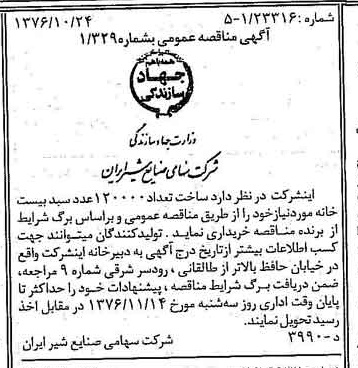 شماره: ۵-۱/۲۳۳۱۶ ۱۳۷۶/۱۰/۲۴
آگهی مناقصه عمومی بشماره ۱/۳۲۹
همه با هم
جهاد
سازندگی
وزارت جهاد سازندگی
شرکت سهامی صنایع شیر ایران
اینشرکت در نظر دارد ساخت تعداد ۱۲۰۰۰۰ عدد سبد بیست
خانه موردنیاز خود را از طریق مناقصه عمومی و براساس برگ شرایط
از برنده مناقصه خریداری نماید. تولیدکنندگان میتوانند جهت
کسب اطلاعات بیشتر از تاریخ درج آگهی به دبیرخانه اینشرکت واقع
در خیابان حافظ بالاتر از طالقانی، رودسر شرقی شماره ۹ مراجعه،
ضمن دریافت برگ شرایط مناقصه، پیشنهادات خود را حداکثر تا
پایان وقت اداری روز سه‌شنبه مورخ ۱۳۷۶/۱۱/۱۴ در مقابل اخذ
رسید تحویل نمایند.
د-۳۹۹۰ شرکت سهامی صنایع شیر ایران